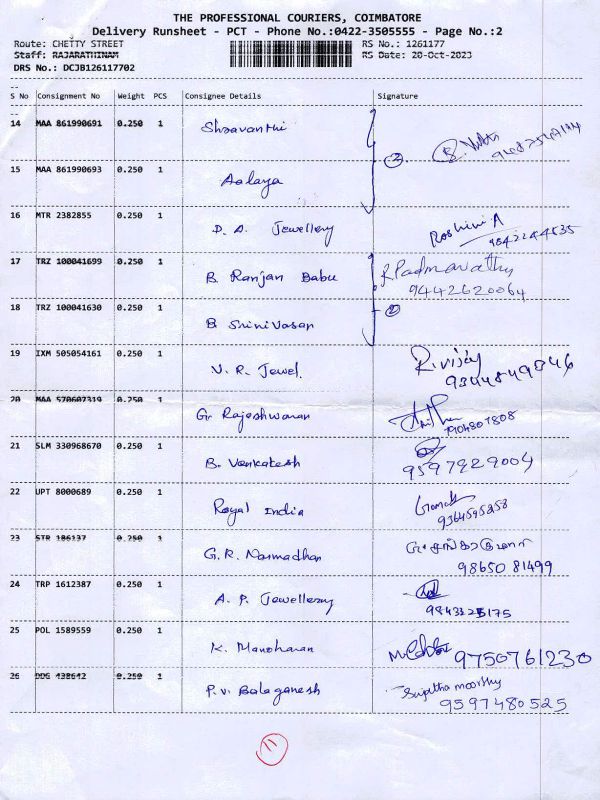 THE PROFESSIONAL COURIERS, COIMBATORE
Delivery Runsheet - PCT - Phone No.:0422-3505555 - Page No.:2
Route: CHETTY STREET RS No.: 1261177
Staff: RAJARATHINAM RS Date: 20-Oct-2023
DRS No.: DCJB126117702
S No Consignment No Weight PCS Consignee Details Signature
14 MAA 861990691 0.250 1 Shravanthi
15 MAA 861990693 0.250 1 Aalaya 2
16 MTR 2382855 0.250 1 D. A. Jewellery Roshini A
17 TRZ 100041699 0.250 1 B. Ranjan Babu R. Padmavathy
9442620064
18 TRZ 100041630 0.250 1 B Srinivasan 2
19 IXM 505054161 0.250 1 V. R. Jewel. R. vijay
9344849846
20 MAA 570607319 0.250 1 G. Rajeshwaran
7904807808
21 SLM 330968670 0.250 1 B. Venkatesh
9597929004
22 UPT 8000689 0.250 1 Royal India
9364595258
23 STR 186137 0.250 1 G. R. Narmadhan
98650 81499
24 TRP 1612387 0.250 1 A. P. Jewellery
25 POL 1589559 0.250 1 K. Manoharan 9750761230
26 DDG 438642 0.250 1 P. V. Balaganesh Sujitha moorthy
9597480525
11